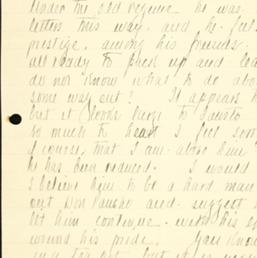 under the old regime he was
letters this way, and he feels
prestige, among his friends.
all ready to pack up and lea
do not know what to do abou
some way out? It appears h
but it looks large to Fausto
so much to hear. I feel sor
of course, that I am alone him
he has been reduced. I would
I believe him to be a hard man
out Don Fausto and suggest
let him continue with his o
wound his pride. You know
but it is